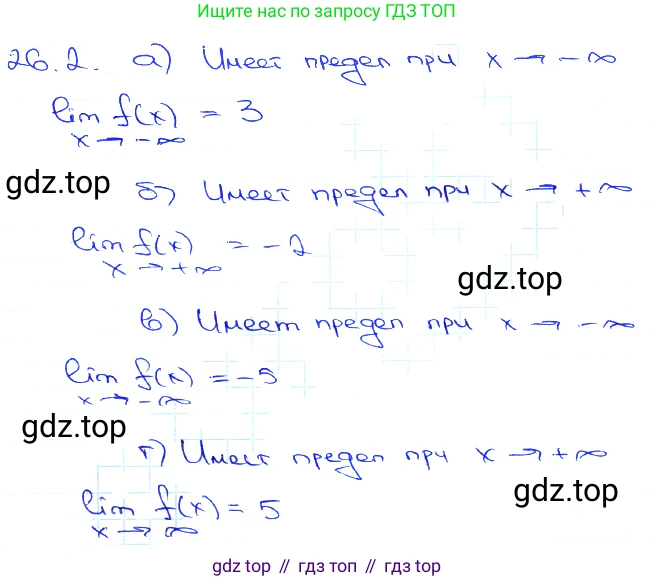 Ищите нас по запросу ГДЗ ТОП
26.2. а) Имеет предел при x → -∞
lim f(x) = 3
x → -∞
gdz.top
б) Имеет предел при x → +∞
lim f(x) = -2
x → +∞
gdz.top
в) Имеет предел при x → -∞
lim f(x) = -5
x → -∞
gdz.top
г) Имеет предел при x → +∞
gdz.top
lim f(x) = 5
x → ∞
gdz top // гдз топ // гдз.top